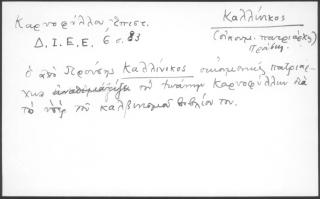 Καρυοφύλλου ἐπιστ.
Δ.Ι.Ε.Ε. 6 σ. 83
Καλλίνικος
(οἰκουμ. πατριάρχης)
ὁ ἀπὸ Προύσης Καλλίνικος οἰκουμενικὸς πατριάρ-
χης τὸν Ἰωάννην Καρυοφύλλην διὰ
τὸ ὑπὲρ τοῦ καλβινισμοῦ βιβλίον του.